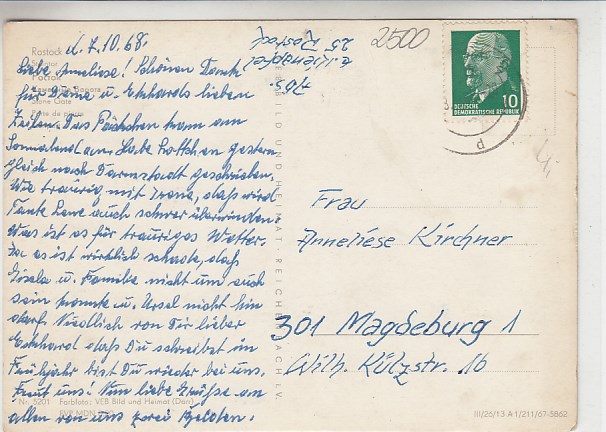 d. 7.10.68.
Rostock
Steintor
Росток
Stone Gate
Liebe Anneliese! Schönen Dank
für Deine u. Ekkehards lieben
Zeilen. Das Päckchen kam am
Sonnabend an. Habe Lottchen gestern
gleich nach Darmstadt geschrieben.
Wie traurig mit Irene, daß wird
Tante Lene auch schwer überwinden.
Was ist es für trauriges Wetter.
Ja es ist wirklich schade, daß
Gisela u. Familie nicht um auch
sein konnte u. Ursel nicht hin
darf. Niedlich von Dir lieber
Ekkehard daß Du schreibst im
Frühjahr bist Du wieder bei uns.
Freut uns! Nun liebe Grüße an
allen von uns zwei Beiden.
Nr. 5201 Farbfoto: VEB Bild und Heimat (Darr)
EVP MDN
25 Rostock
2500
BILD UND HEIMAT REICHENBACH I. V.
10
DEUTSCHE
DEMOKRATISCHE REPUBLIK
d
Frau
Anneliese Kirchner
301 Magdeburg 1
Wilh. Külzstr. 16
III/26/13 A 1/211/67-5862